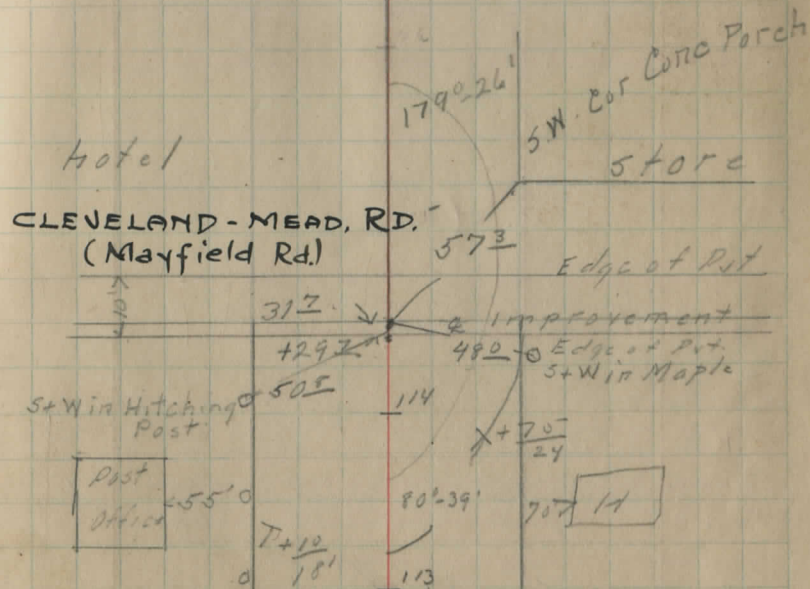 179°-26'
S.W. Cor Conc Porch
hotel
Store
CLEVELAND - MEAD. RD.
(Mayfield Rd.)
57 3
Edge of Pvt
10'
31 7
℄ Improvement
+29 7
48 0
Edge of Pvt.
S+W in Maple
50 5
S+W in Hitching
Post
114
+70
24
Post
Office
55'
80°-39'
70'
H
T+10
18'
113